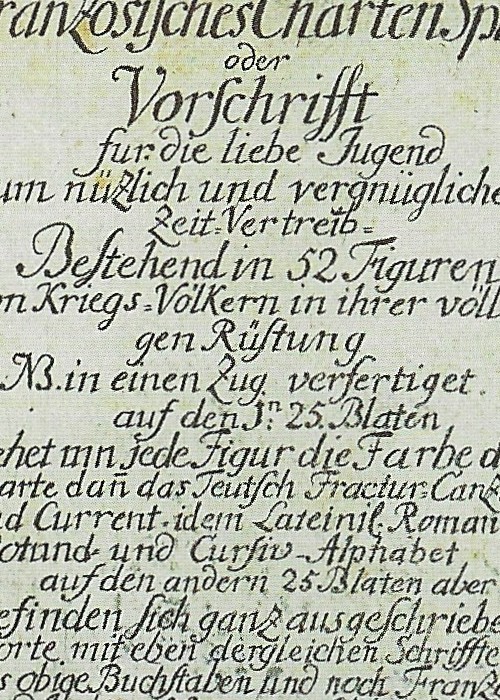 ranzösischesCharten Sp
oder
Vorschrifft
fur die liebe Jugend
um nüzlich und vergnügliche
Zeit=Vertreib=
Bestehend in 52 Figuren
n Kriegs=Völkern in ihrer völl
gen Rüstung
NB. in einen Zug verfertiget.
auf den 1n. 25. Blaten
ehet mn jede Figur die Farbe d
arte dan das Teutsch Fractur=Canz
d Current. idem Lateinis. Roman
otund- und Cursiv-Alphabet
auf den andern 25 Blaten aber
efinden sich ganz ausgeschriebe
orte, mit eben dergleichen Schriffte
s obige Buchstaben und noch Franz